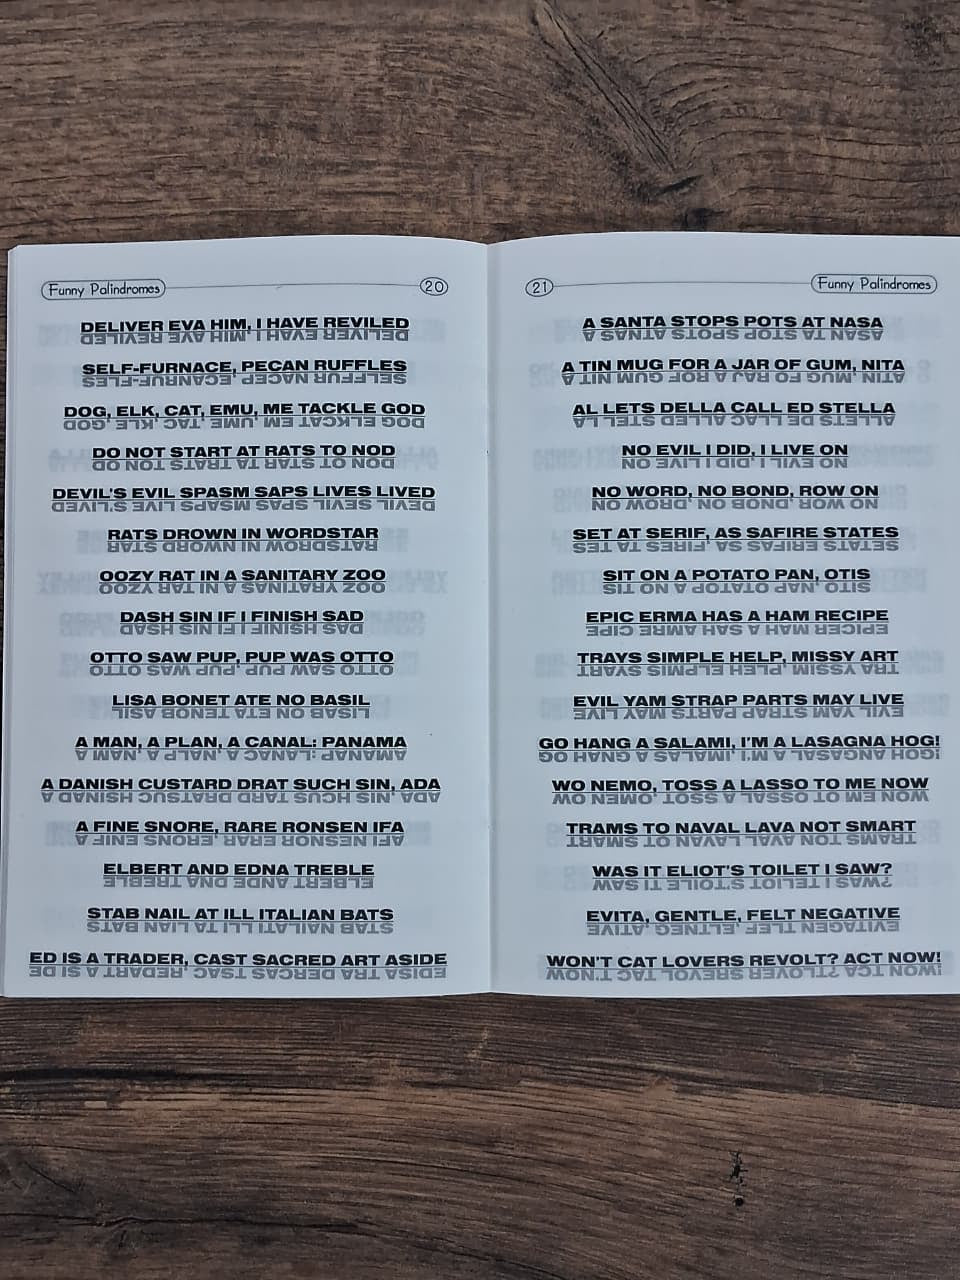 Funny Palindromes 20
DELIVER EVA HIM, I HAVE REVILED
SELF-FURNACE, PECAN RUFFLES
DOG, ELK, CAT, EMU, ME TACKLE GOD
DO NOT START AT RATS TO NOD
DEVIL'S EVIL SPASM SAPS LIVES LIVED
RATS DROWN IN WORDSTAR
OOZY RAT IN A SANITARY ZOO
DASH SIN IF I FINISH SAD
OTTO SAW PUP, PUP WAS OTTO
LISA BONET ATE NO BASIL
A MAN, A PLAN, A CANAL: PANAMA
A DANISH CUSTARD DRAT SUCH SIN, ADA
A FINE SNORE, RARE RONSEN IFA
ELBERT AND EDNA TREBLE
STAB NAIL AT ILL ITALIAN BATS
ED IS A TRADER, CAST SACRED ART ASIDE
21 Funny Palindromes
A SANTA STOPS POTS AT NASA
A TIN MUG FOR A JAR OF GUM, NITA
AL LETS DELLA CALL ED STELLA
NO EVIL I DID, I LIVE ON
NO WORD, NO BOND, ROW ON
SET AT SERIF, AS SAFIRE STATES
SIT ON A POTATO PAN, OTIS
EPIC ERMA HAS A HAM RECIPE
TRAYS SIMPLE HELP, MISSY ART
EVIL YAM STRAP PARTS MAY LIVE
GO HANG A SALAMI, I'M A LASAGNA HOG!
WO NEMO, TOSS A LASSO TO ME NOW
TRAMS TO NAVAL LAVA NOT SMART
WAS IT ELIOT'S TOILET I SAW?
EVITA, GENTLE, FELT NEGATIVE
WON'T CAT LOVERS REVOLT? ACT NOW!